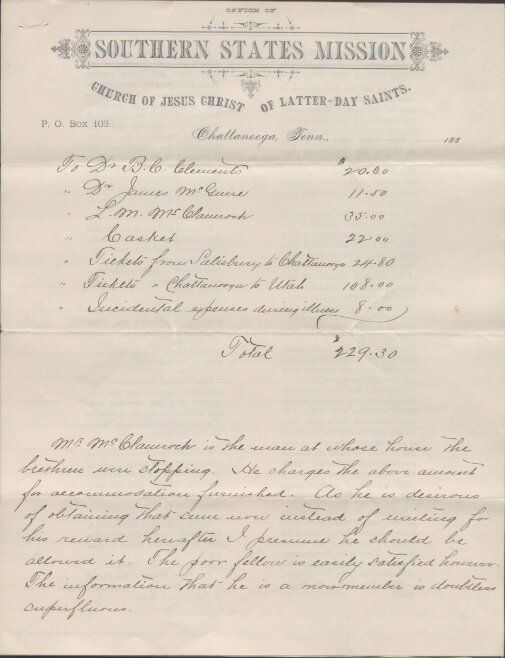 OFFICE OF
SOUTHERN STATES MISSION
CHURCH OF JESUS CHRIST OF LATTER-DAY SAINTS.
P. O. Box 103.
Chattanooga, Tenn., 188
To Dr B. C. Clements $20.00
" Dr James McGuire 11.50
" L. M. McClamroch 35.00
" Casket 22.00
" Tickets from Salisbury to Chattanooga 24.80
" Tickets " Chattanooga to Utah 108.00
" Incidental expenses during illness 8.00
Total $229.30
Mr. McClamroch is the man at whose house the
brethren were stopping. He charges the above amount
for accommodation furnished. As he is desirous
of obtaining that sum now instead of waiting for
his reward hereafter I presume he should be
allowed it. The poor fellow is easily satisfied however.
The information that he is a non-member is doubtless
superfluous.